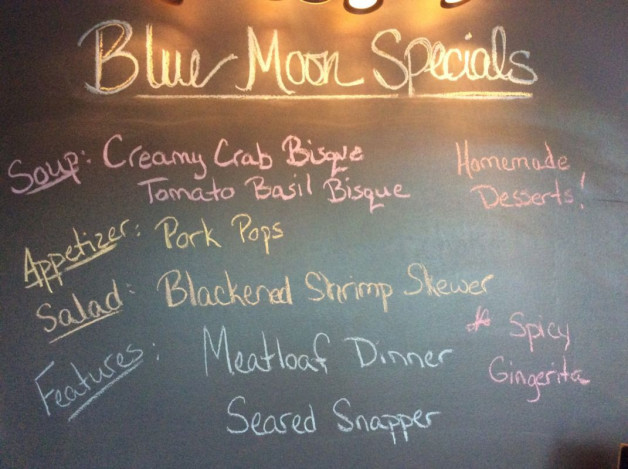 Blue Moon Specials
Soup: Creamy Crab Bisque
Tomato Basil Bisque
Homemade
Desserts!
Appetizer: Pork Pops
Salad: Blackened Shrimp Skewer
Features: Meatloaf Dinner
Seared Snapper
Spicy
Gingerita